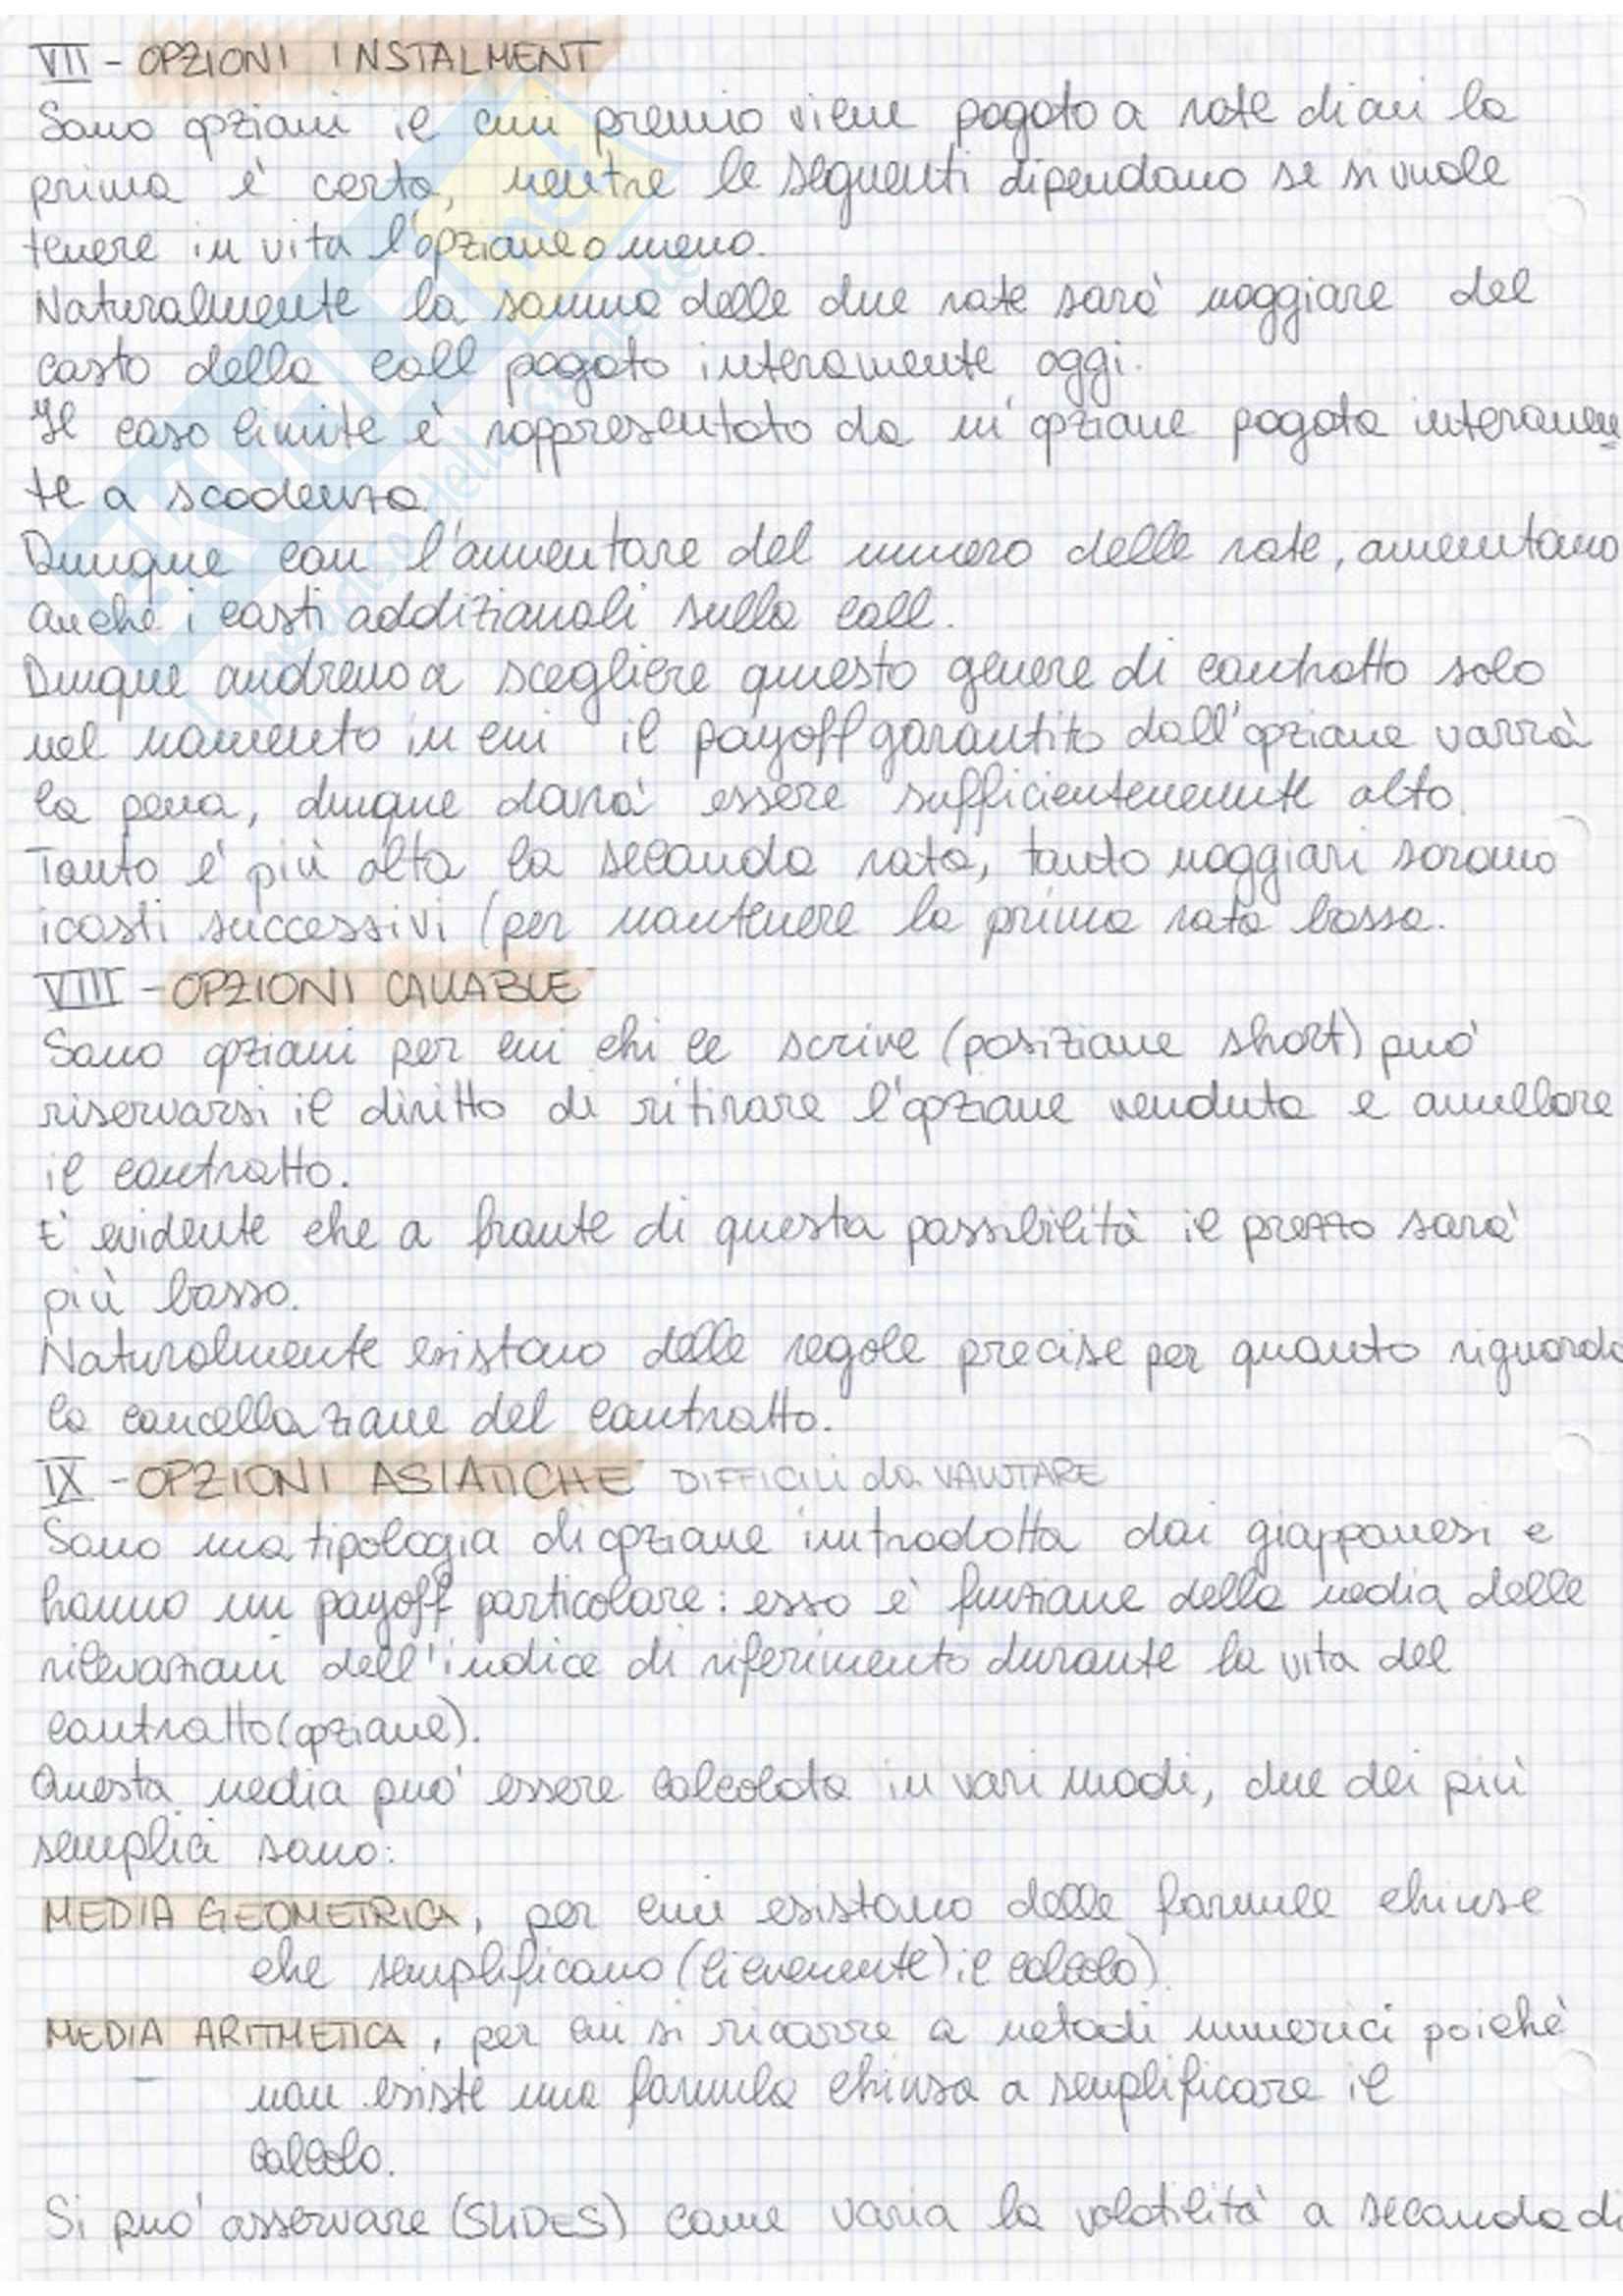 VII - OPZIONI INSTALMENT
Sono opzioni il cui premio viene pagato a rate di cui la
prima è certa, mentre le seguenti dipendono se si vuole
tenere in vita l'opzione o meno.
Naturalmente la somma delle due rate sarà maggiore del
costo della call pagato interamente oggi.
Il caso limite è rappresentato da un'opzione pagata interamen
te a scadenza.
Dunque con l'aumentare del numero delle rate, aumentano
anche i costi addizionali sulla call.
Dunque andremo a scegliere questo genere di contratto solo
nel momento in cui il payoff garantito dall'opzione varrà
la pena, dunque dovrà essere sufficientemente alto.
Tanto è più alta la seconda rata, tanto maggiori saranno
i costi successivi (per mantenere la prima rata bassa.
VIII - OPZIONI CALLABLE
Sono opzioni per cui chi le scrive (posizione short) può
riservarsi il diritto di ritirare l'opzione venduta e annullare
il contratto.
E' evidente che a fronte di questa possibilità il prezzo sarà
più basso.
Naturalmente esistono delle regole precise per quanto riguarda
la cancellazione del contratto.
IX - OPZIONI ASIATICHE DIFFICILI da VALUTARE
Sono una tipologia di opzione introdotta dai giapponesi e
hanno un payoff particolare: esso è funzione della media delle
rilevazioni dell'indice di riferimento durante la vita del
contratto (opzione).
Questa media può essere calcolata in vari modi, due dei più
semplici sono:
MEDIA GEOMETRICA, per cui esistono delle formule chiuse
che semplificano (lievemente) il calcolo).
MEDIA ARITMETICA, per cui si ricorre a metodi numerici poichè
non esiste una formula chiusa a semplificare il
calcolo.
Si può osservare (SLIDES) come varia la volatilità a seconda di